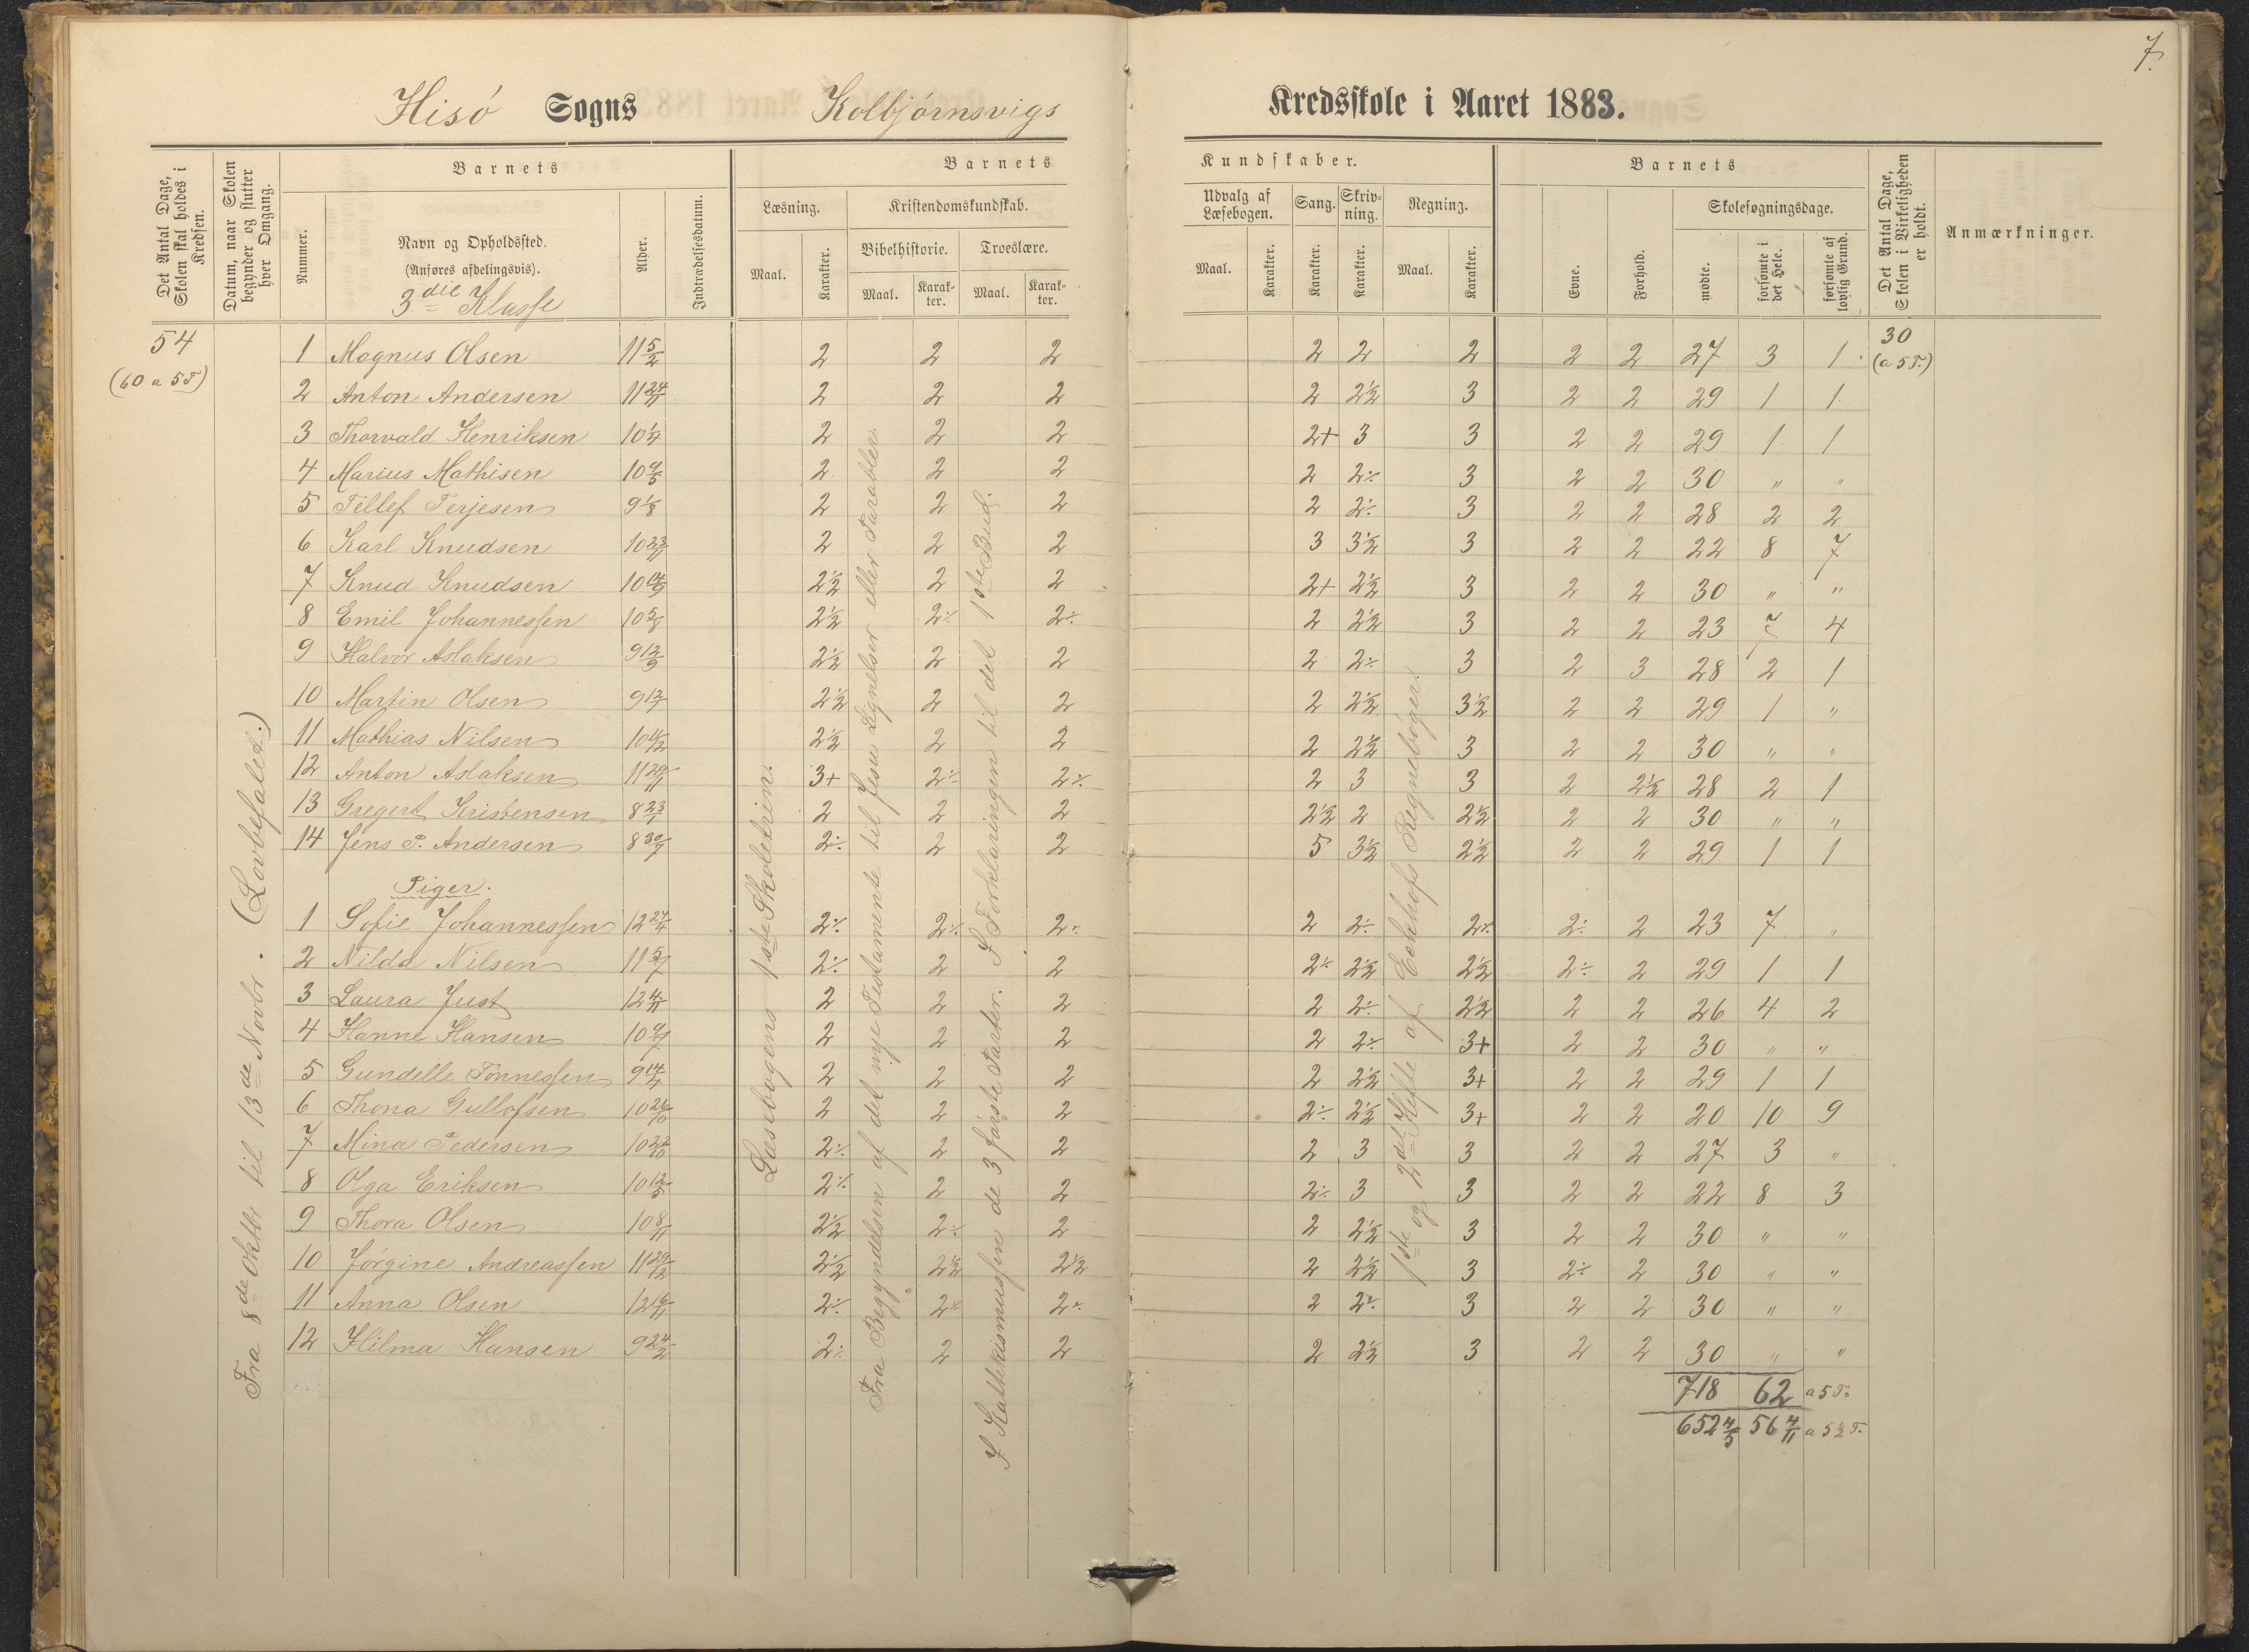 7.
Hisö Sogns Kolbjørnsvigs Kredsskole i Aaret 1883.
Det Antal Dage, Skolen skal holdes i Kredsen.
Datum, naar Skolen begynder og slutter hver Omgang.
Barnets
Nummer.
Navn og Opholdssted.
(Anføres afdelingsvis).
3die Klasse
Alder.
Indtrædelsesdatum.
Barnets Kundskaber.
Læsning.
Maal. Karakter.
Kristendomskundskab.
Bibelhistorie. Troeslære.
Maal. Karakter. Maal. Karakter.
Udvalg af Læsebogen.
Maal. Karakter.
Sang. Karakter.
Skrivning. Karakter.
Regning.
Maal. Karakter.
Barnets
Evne. Forhold.
Skolesøgningsdage.
mødte. forsømte i det Hele. forsømte af lovlig Grund.
Det Antal Dage, Skolen i Virkeligheden er holdt.
Anmærkninger.
54
(60 a 5T)
Fra 8de Oktbr til 13de Novbr. (Lovbefalet.)
Læsebogens 1ste Skoletrin.
Fra Begyndelsen af det nye Testamente til Jesu Lignelser eller Parabler.
I Katekismussen de 3 første Parter. I Forklaringen til det 1ste Bud.
1ste og 2det Hefte af Eckhofs Regnebøger.
30
(a 5T.)
1 Magnus Olsen 11 5/2 2 2 2 2 2 2 2 2 27 3 1
2 Anton Andersen 11 24/11 2 2 2 2 2½ 3 2 2 29 1 1
3 Thorvald Henriksen 10 1/4 2 2 2 2+ 3 3 2 2 29 1 1
4 Marius Mathisen 10 9/5 2 2 2 2 2÷ 3 2 2 30 " "
5 Tellef Terjesen 9 1/8 2 2 2 2 2÷ 3 2 2 28 2 2
6 Karl Knudsen 10 23/11 2 2 2 3 3½ 3 2 2 22 8 7
7 Knud Knudsen 10 14/9 2½ 2 2 2+ 2½ 3 2 2 30 " "
8 Emil Johannessen 10 5/8 2½ 2÷ 2÷ 2 2½ 3 2 2 23 7 4
9 Halvor Aslaksen 9 12/9 2½ 2 2 2 2÷ 3 2 3 28 2 1
10 Martin Olsen 9 12/7 2½ 2 2 2 2½ 3½ 2 2 29 1 "
11 Mathias Nilsen 10 11/2 2½ 2 2 2 2½ 3 2 2 30 " "
12 Anton Aslaksen 11 29/11 3+ 2÷ 2÷ 2 3 3 2 2½ 28 2 1
13 Gregert Kristensen 8 23/1 2 2 2 2½ 2 2½ 2 2 30 " "
14 Jens P. Andersen 8 30/7 2÷ 2 2 5 3½ 2½ 2 2 29 1 1
Piger.
1 Sofie Johannessen 12 27/4 2÷ 2÷ 2÷ 2 2÷ 2÷ 2÷ 2 23 7 "
2 Nilda Nilsen 11 5/7 2÷ 2 2 2÷ 2½ 2½ 2÷ 2 29 1 1
3 Laura Just 12 4/11 2 2 2 2 2÷ 2½ 2 2 26 4 2
4 Hanne Hansen 10 9/7 2 2 2 2 2÷ 3+ 2 2 30 " "
5 Gundelle Tønnessen 9 14/4 2 2 2 2 2½ 3+ 2 2 29 1 1
6 Thona Gullofsen 10 26/10 2 2 2 2÷ 2½ 3+ 2 2 20 10 9
7 Mina Pedersen 10 22/10 2÷ 2 2 2 3 3 2 2 27 3 "
8 Olga Eriksen 10 12/5 2÷ 2 2 2÷ 3 3 2 2 22 8 3
9 Thora Olsen 10 8/11 2½ 2÷ 2 2 2½ 3 2 2 30 " "
10 Jørgine Andreassen 11 29/12 2½ 2½ 2½ 2 2½ 3 2÷ 2 30 " "
11 Anna Olsen 12 16/11 2÷ 2÷ 2÷ 2 2÷ 3 2 2 30 " "
12 Hilma Hansen 9 24/2 2÷ 2 2 2 2½ 3 2 2 30 " "
718 62 a 5T.
652 4/5 56 4/11 a 5½ T.